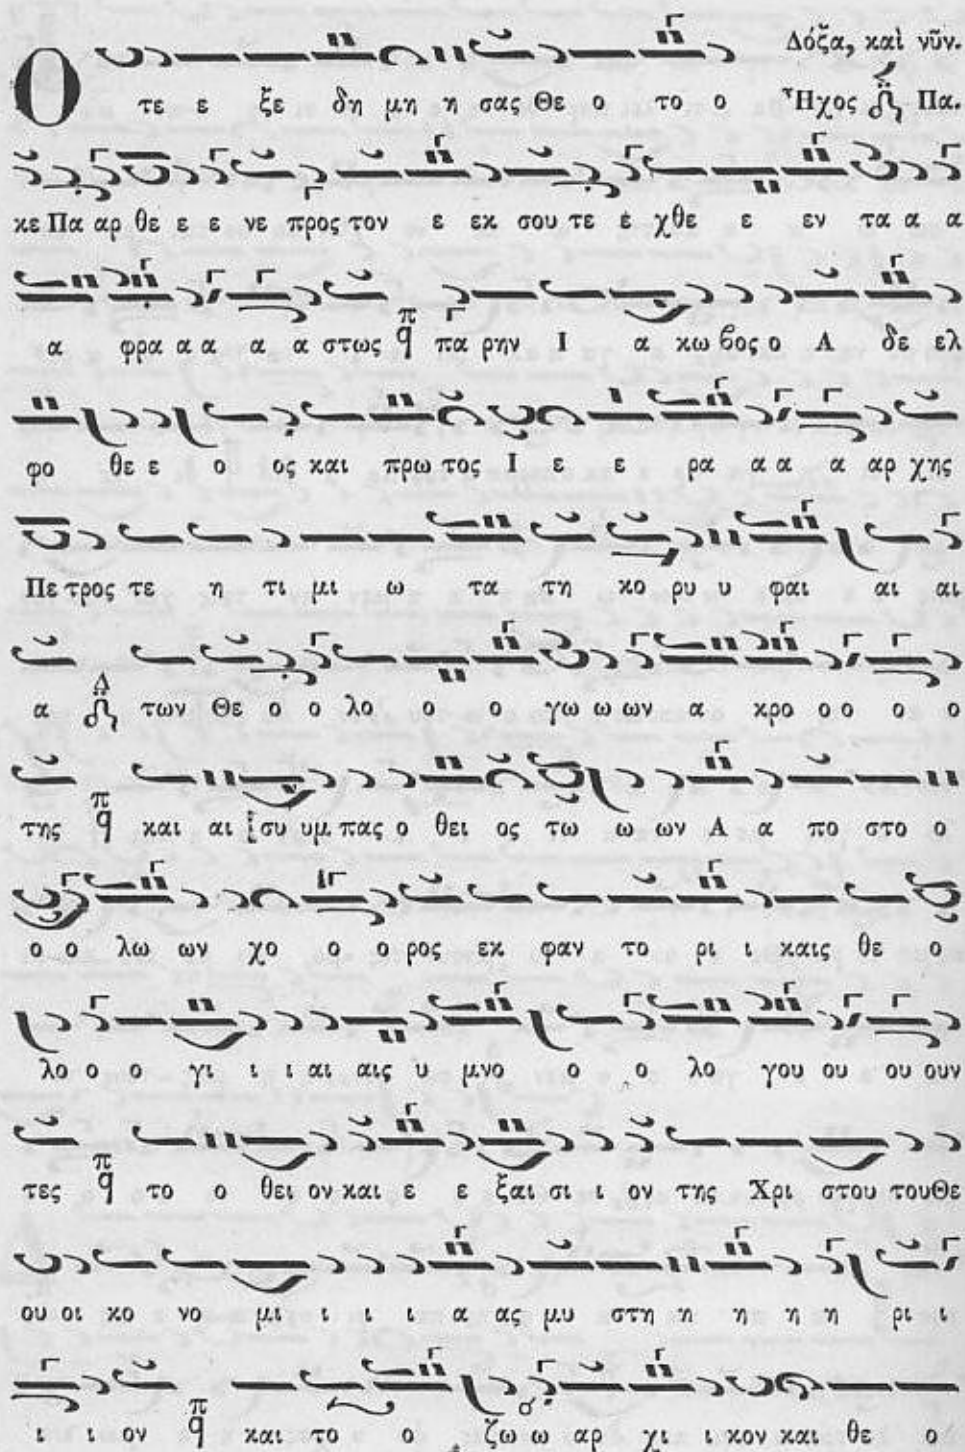 Δόξα, καὶ νῦν.
Ο τε ε ξε δη μη η σας Θε ο το ο Ἦχος Πα.
κε Πα αρ θε ε ε νε προς τον ε εκ σου τε έ χθε ε εν τα α α
α φρα α α α α στως π q πα ρην Ι α κω βος ο Α δε ελ
φο θε ε ο ος και πρω τος Ι ε ε ρα α α α αρ χης
Πε τρος τε η τι μι ω τα τη κο ρυ υ φαι αι αι
α Δ των Θε ο ο λο ο ο γω ω ων α κρο ο ο ο ο
της π q και αι συ υμ πας ο θει ος τω ω ων Α α πο στο ο
ο ο λω ων χο ο ο ρος εκ φαν το ρι ι καις θε ο
λο ο ο γι ι ι αι αις υ μνο ο ο λο γου ου ου ουν
τες π q το ο θει ον και ε ε ξαι σι ι ον της Χρι στου του Θε
ου οι κο νο μι ι ι ι α ας μυ στη η η η η ρι ι
ι ι ον π q και το ο ζω ω αρ χι ι κον και θε ο